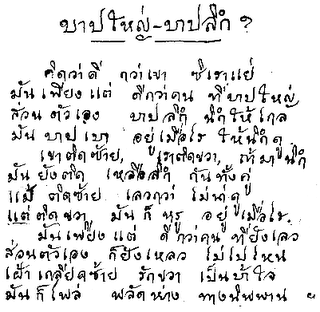 บาปใหญ่-บาปลึก ?
คิดว่าดี กว่าเขา ซิเราแย่
มันเพียงแต่ ดีกว่าคน ที่บาปใหญ่
ส่วนตัวเอง บาปลึก นึกให้ไกล
มันบาปเบา อยู่เมื่อไร ให้นึกดู
เขาติดซ้าย, เราติดขวา, ถ้ามานึก
มันยังติด เหลือลึก กันทั้งคู่
แม้ ติดซ้าย เลวกว่า ไม่น่าดู
แต่ติดขวา มันก็หรู อยู่เมื่อไร.
มันเพียงแต่ ดีกว่าคน ที่ยังเลว
ส่วนตัวเอง ก็ยังเหลว ไม่ไปไหน
เฝ้าเกลียดซ้าย รักขวา เป็นบ้าใจ
มันก็ไพล่ พลัดห่าง ทางนิพพาน ฯ